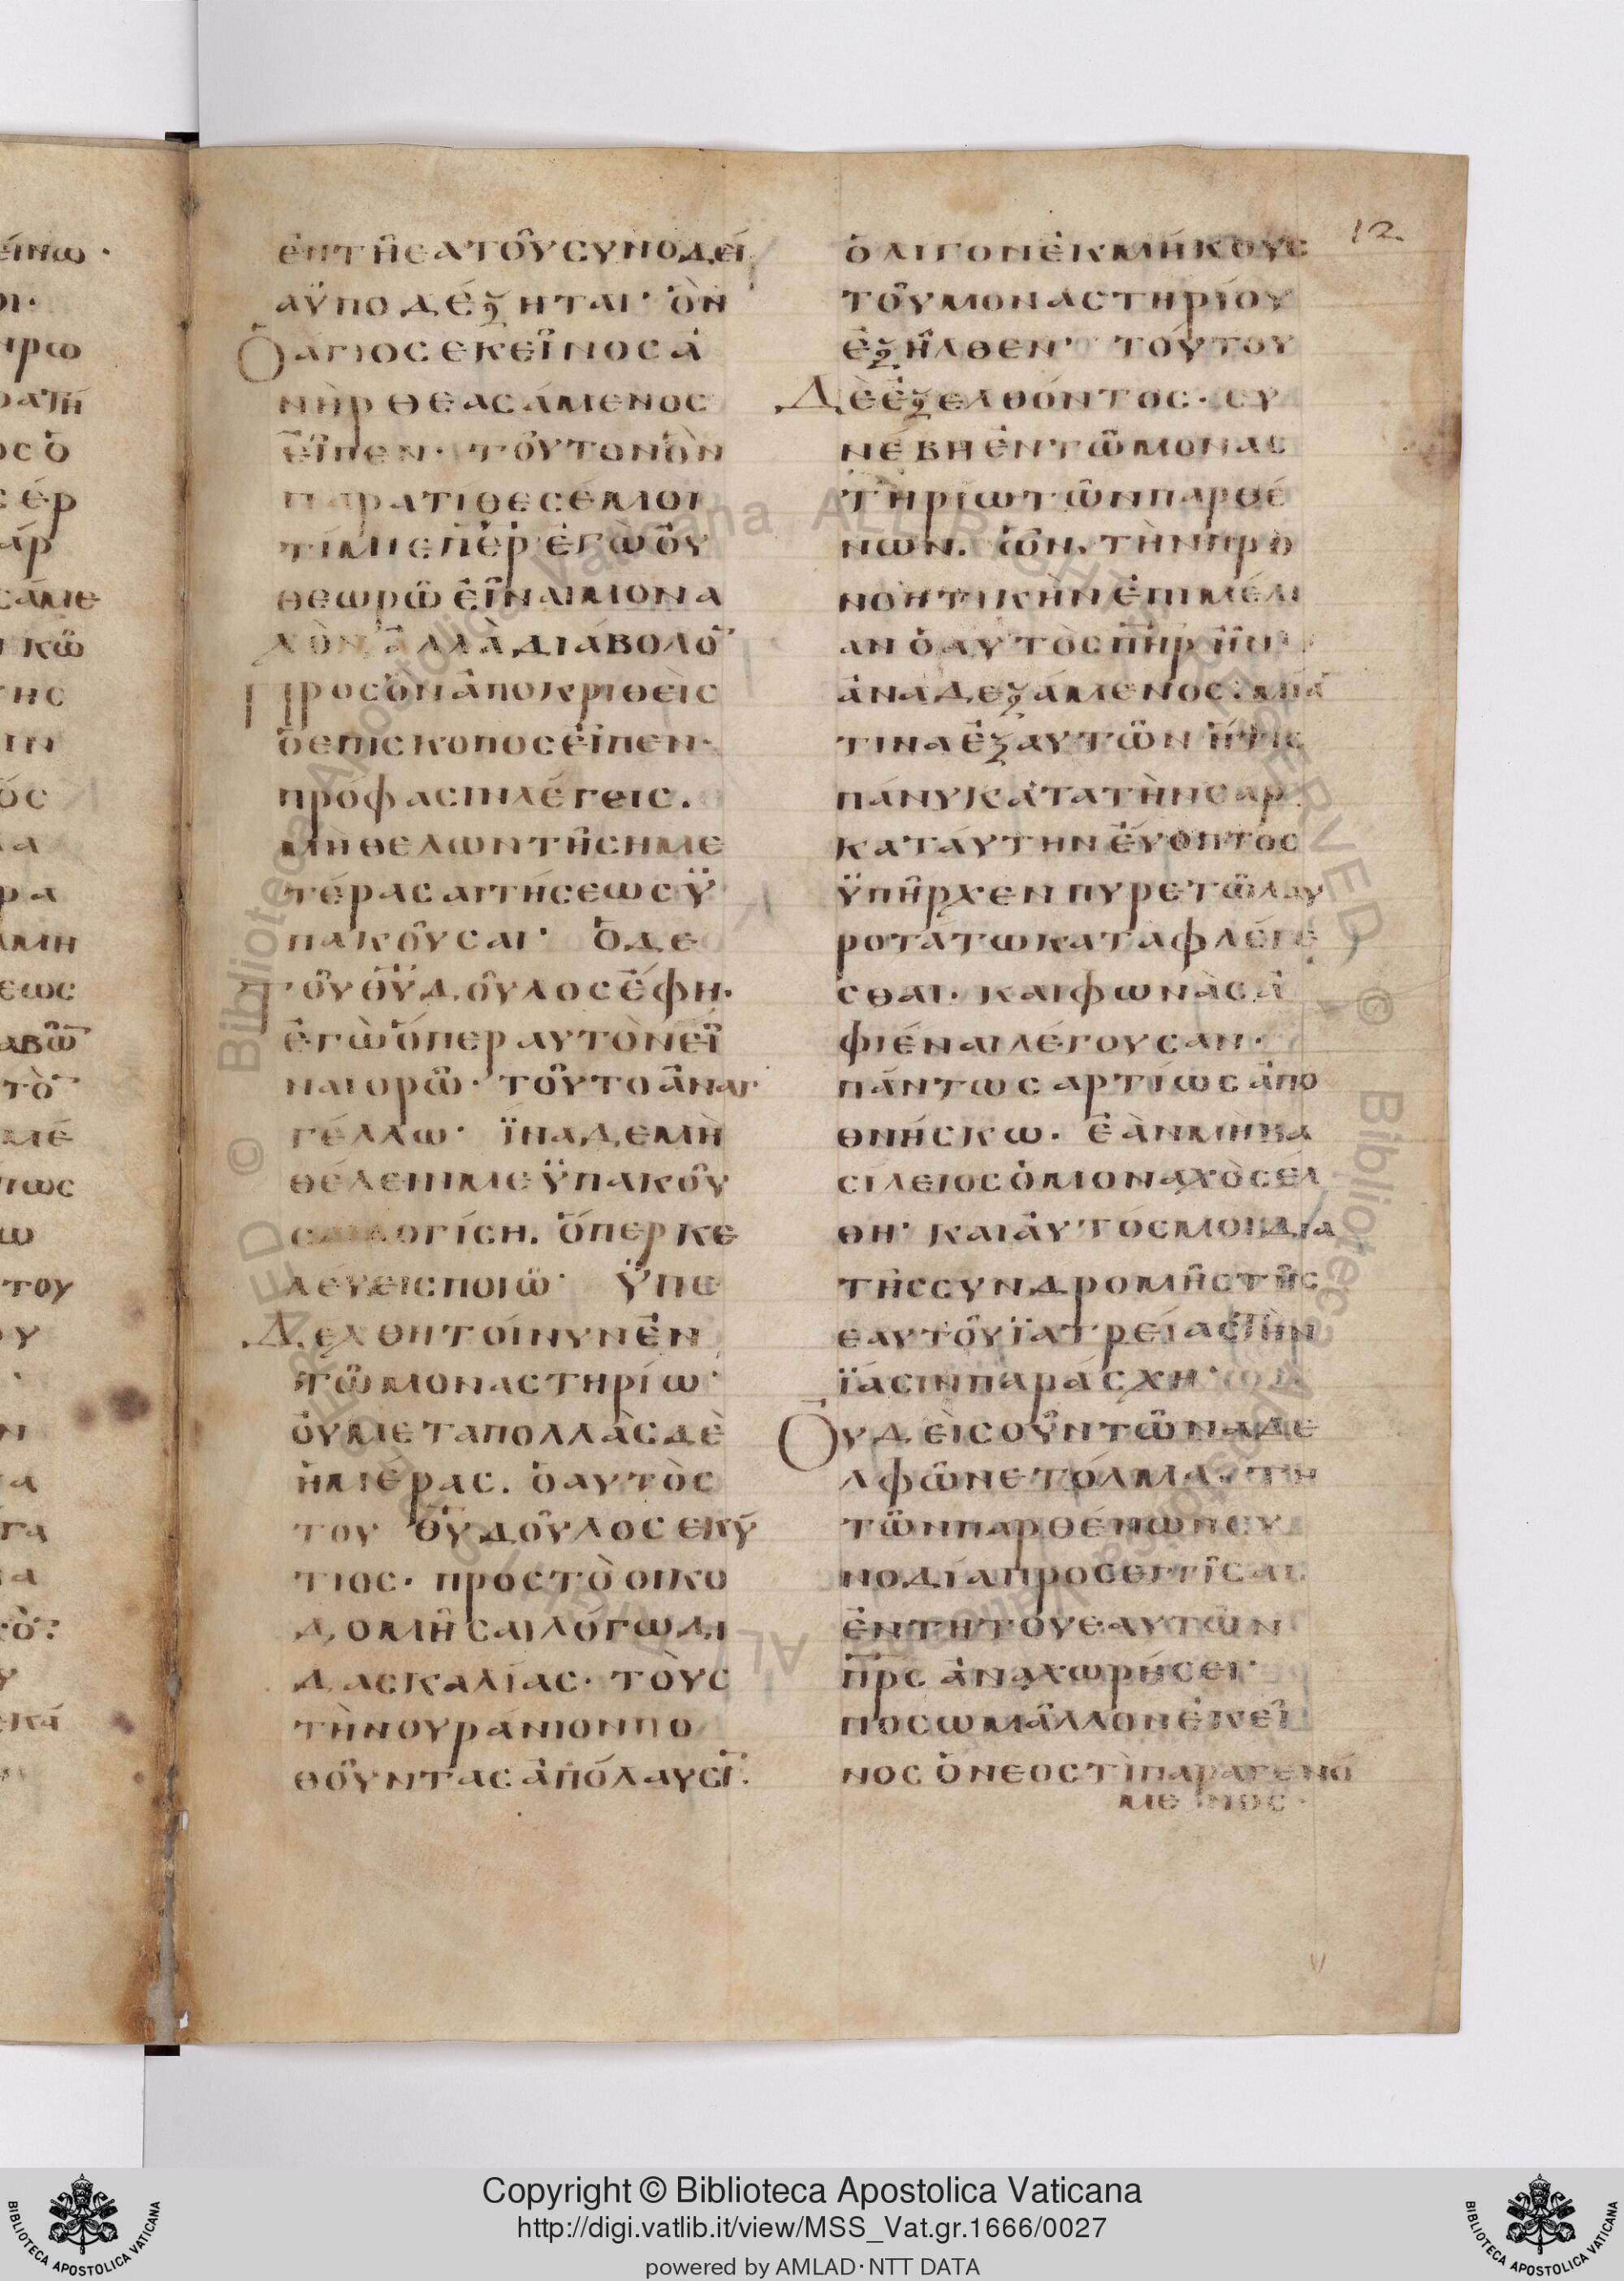 12
ἐντῆεατοῦσυνοδεί
αϋποδέξηται· ὃν
Ὁἅγιοςεκεῖνοςἀ
νὴρθεασάμενος
εἶπεν· τοῦτονὃν
παρατίθεσέμοι
τίμιεπερ ἐγὼοὐ
θεωρῶεἶναιμονα
χὸν ἀλλὰδιάβολο
Προσὃνἀποκριθεὶς
ὁεπισκοποσεἶπεν·
πρόφασινλέγεις.
μὴθελωντῆσημε
τέρασαιτήσεωσϋ
πακοῦσαι· ὁδε
Τοῦθῡδοῦλοσἔφη·
ἐγὼὅπεραυτὸνεῖ
ναιορῶ· τοῦτοἀναγ
γέλλω· ϊναδεμὴ
θέλεινμεϋπακοῦ
σαιλογίση. ὅπερκε
λέυεισποιῶ· Ϋπε
Δεχθητοίνυνἐν
τῶμοναστηρίω·
ὀυμεταπολλὰσδὲ
ἡμέρας. ὁαυτὸς
του θῡδοῦλοσεκύ
τιος· προστὸοικο
δομῆσαιλόγωδι
δασκαλίας· τοὺς
τὴνουράνιονπο
θοῦντασἀπόλαυσῑ·
ὀλιγονἐκμήκους
τοῦμοναστηρίου
ἐξῆλθεν· τούτου
Δὲἐξελθόντος· συ
νέβηἐντῶμονας
τηρίωτῶνπαρθέ
νων. ὧν, τὴνπρο
νοητικὴνἐπιμέλι
ανὁαυτὸσπηρ ἦν
ἀναδεξάμενος· μία
τιναἐξαυτῶν ἥτις
πάνυκατατὴνσάρ
καταύτηνἐύοπτος
ϋπῆρχενπυρετῶλαυ
ροτάτωκαταφλέγε
σθαι· καιφωνὰσἀ
φιέναιλέγουσαν·
πάντωσαρτίωσἀπο
θνήσκω. ἐὰνμὴβα
σίλειοσὁμοναχὸσέλ
θη· καιἀυτόσμοιδια
τῆσσυνδρομῆστῆς
εαυτοῦϊατρείαστὴν
ϊάσινπαράσχη·
Οὐδεὶσοῦντῶναδε
λφῶνετόλμα· τη
τῶνπαρθένωνσυ
νοδίαπροσεγγῖσαι
ἐντητουεαυτῶν
πρς ἀναχωρήσει·
ποσωμᾶλλονἐκεῖ
νοσ ὁνεοστὶπαραγενό
μενος·
Copyright © Biblioteca Apostolica Vaticana
http://digi.vatlib.it/view/MSS_Vat.gr.1666/0027
powered by AMLAD·NTT DATA
BIBLIOTECA APOSTOLICA VATICANA
BIBLIOTECA APOSTOLICA VATICANA